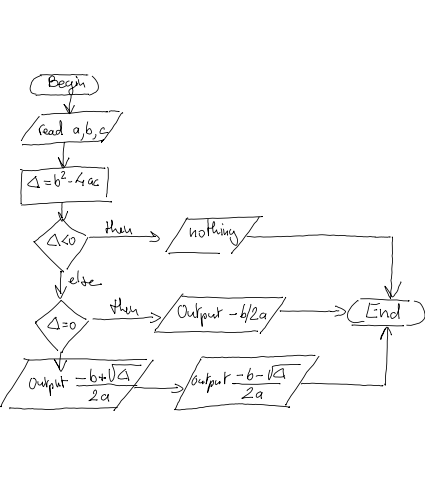 Begin
read a,b,c
Δ=b²-4ac
Δ<0
then
nothing
else
Δ=0
then
Output -b/2a
End
Output -b+√Δ/2a
output -b-√Δ/2a